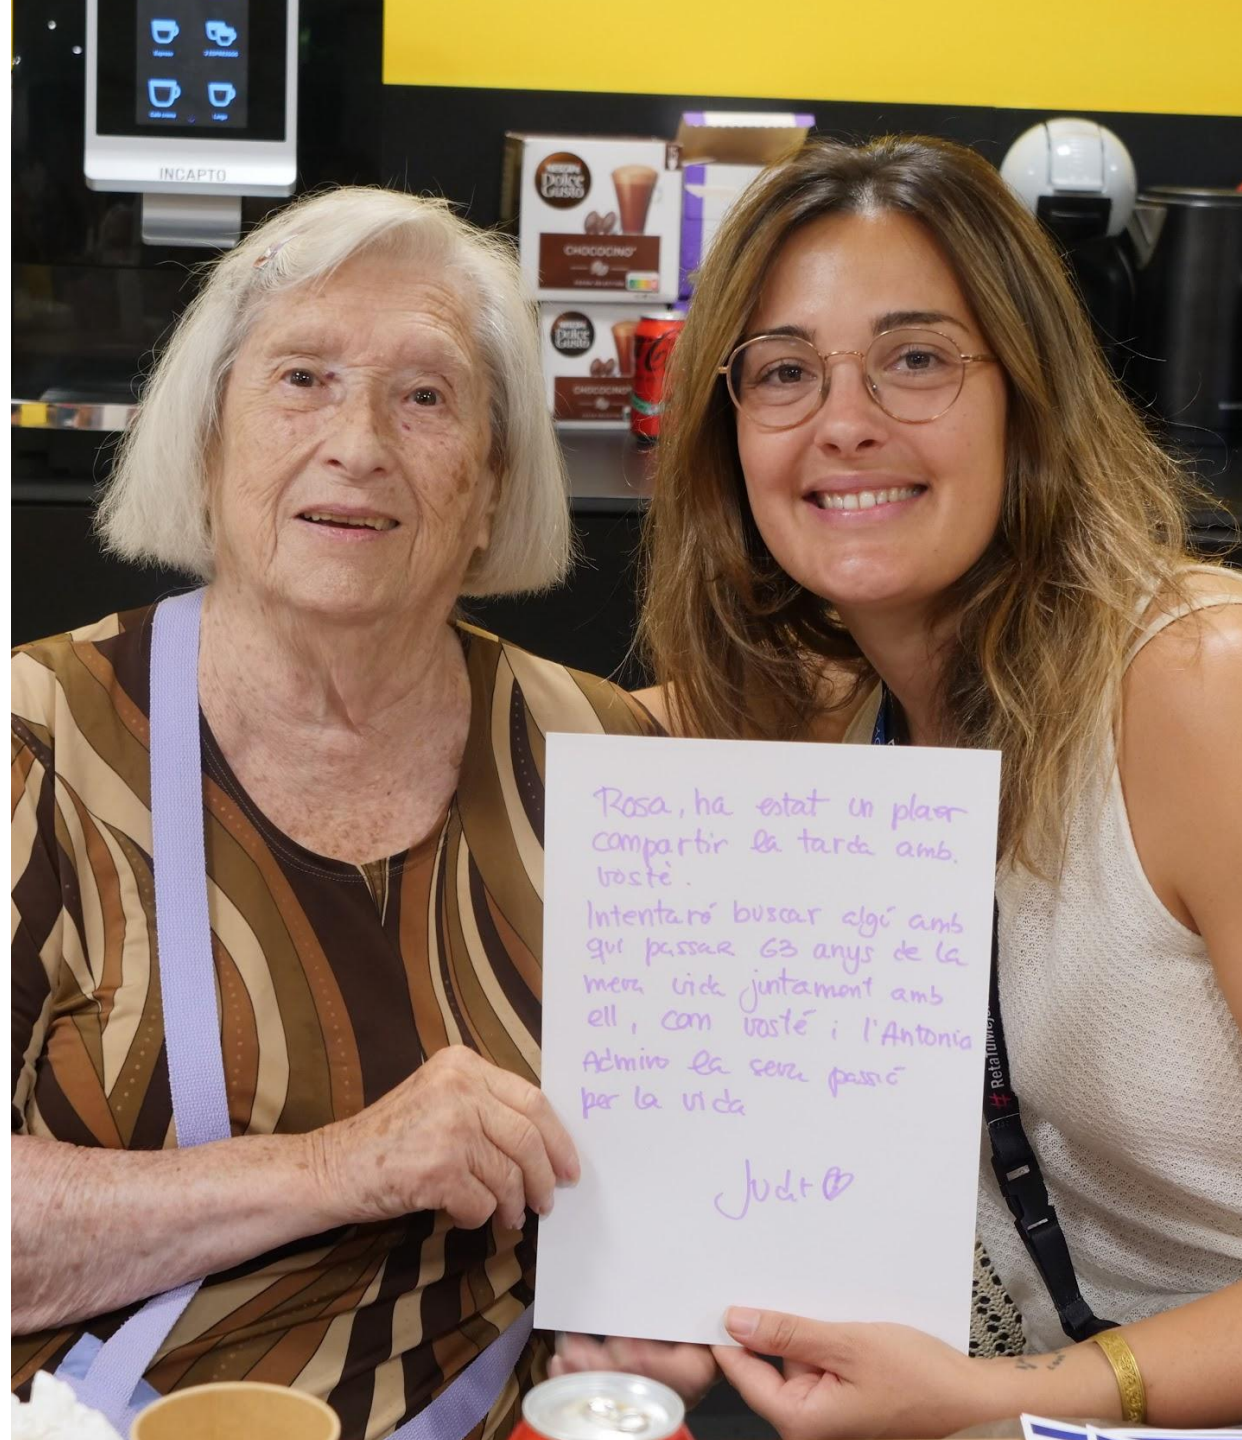 Espresso
2 ESPRESSOS
Largo
INCAPTO
NESCAFÉ
Dolce
Gusto
CHOCOCINO
NESCAFÉ
Dolce
Gusto
CHOCOCINO
Rosa, ha estat un plaer
compartir la tarda amb.
vostè.
Intentaré buscar algú amb
qui passar 63 anys de la
meva vida juntament amb
ell, com vosté i l'Antonio
Admiro la seva passió
por la vida
Judit
# RetaTuMejo